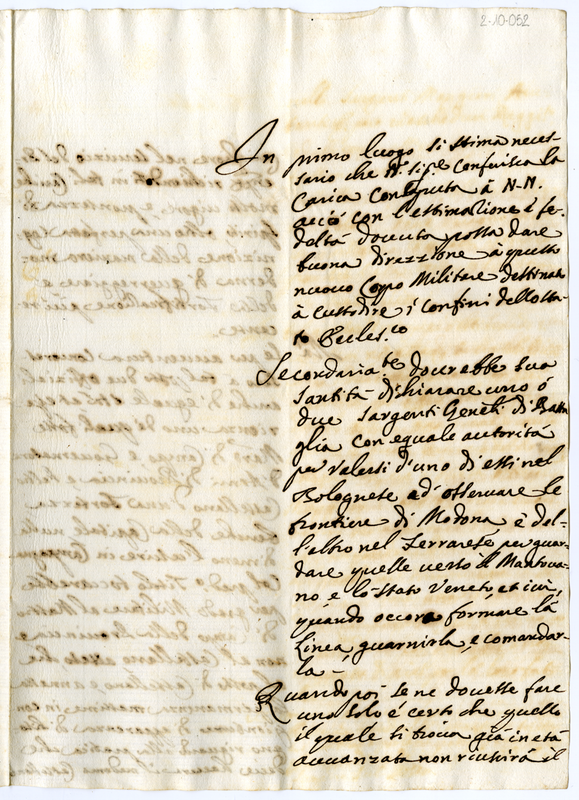 2-10-052
In primo luogo si stima neces-
sario che N. Sig.re conferisca la
Carica Conseputa à N.N.
acciò con l'estimazione è fe-
deltà dovuta possa dare
buona direzzione à questo
nuovo Corpo Militare destinato
à custodire i confini dello Sta-
to Eccles.co
Secondaria.te dovrebbe sua
Santità dichiarare uno ò
due Sargenti Gen̅eli di Batta
glia con eguale autorità
per valersi d'uno di essi nel
Bolognese ad' osservare le
frontiere di Modona è del-
l'altro nel Ferrarese per guar-
dare quelle verso il Mantova-
no e lo stato Veneto, et ivi,
quando occora formare la
Linea, guarnirla, e comandar-
la -
Quando poi se ne dovesse fare
uno solo é certo che quello
il quale si trova già in età
avvanzata non riuscirà il